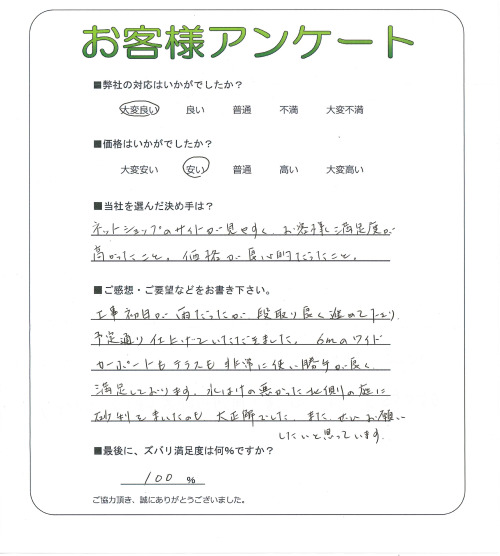 お客様アンケート
■弊社の対応はいかがでしたか?
大変良い 良い 普通 不満 大変不満
■価格はいかがでしたか?
大変安い 安い 普通 高い 大変高い
■当社を選んだ決め手は?
ネットショップのサイトが見やすく、お客様満足度が
高かったこと。価格が良心的だったこと。
■ご感想・ご要望などをお書き下さい。
工事初日が雨だったが、段取り良く進めて下さり
予定通り仕上げていただきました。6mのワイド
カーポートもテラスも非常に使い勝手が良く
満足しております。水はけの悪かった北側の庭に
砂利をまいたのも大正解でした。また、ぜひお願い
したいと思っています。
■最後に、ズバリ満足度は何%ですか?
100 %
ご協力頂き、誠にありがとうございました。